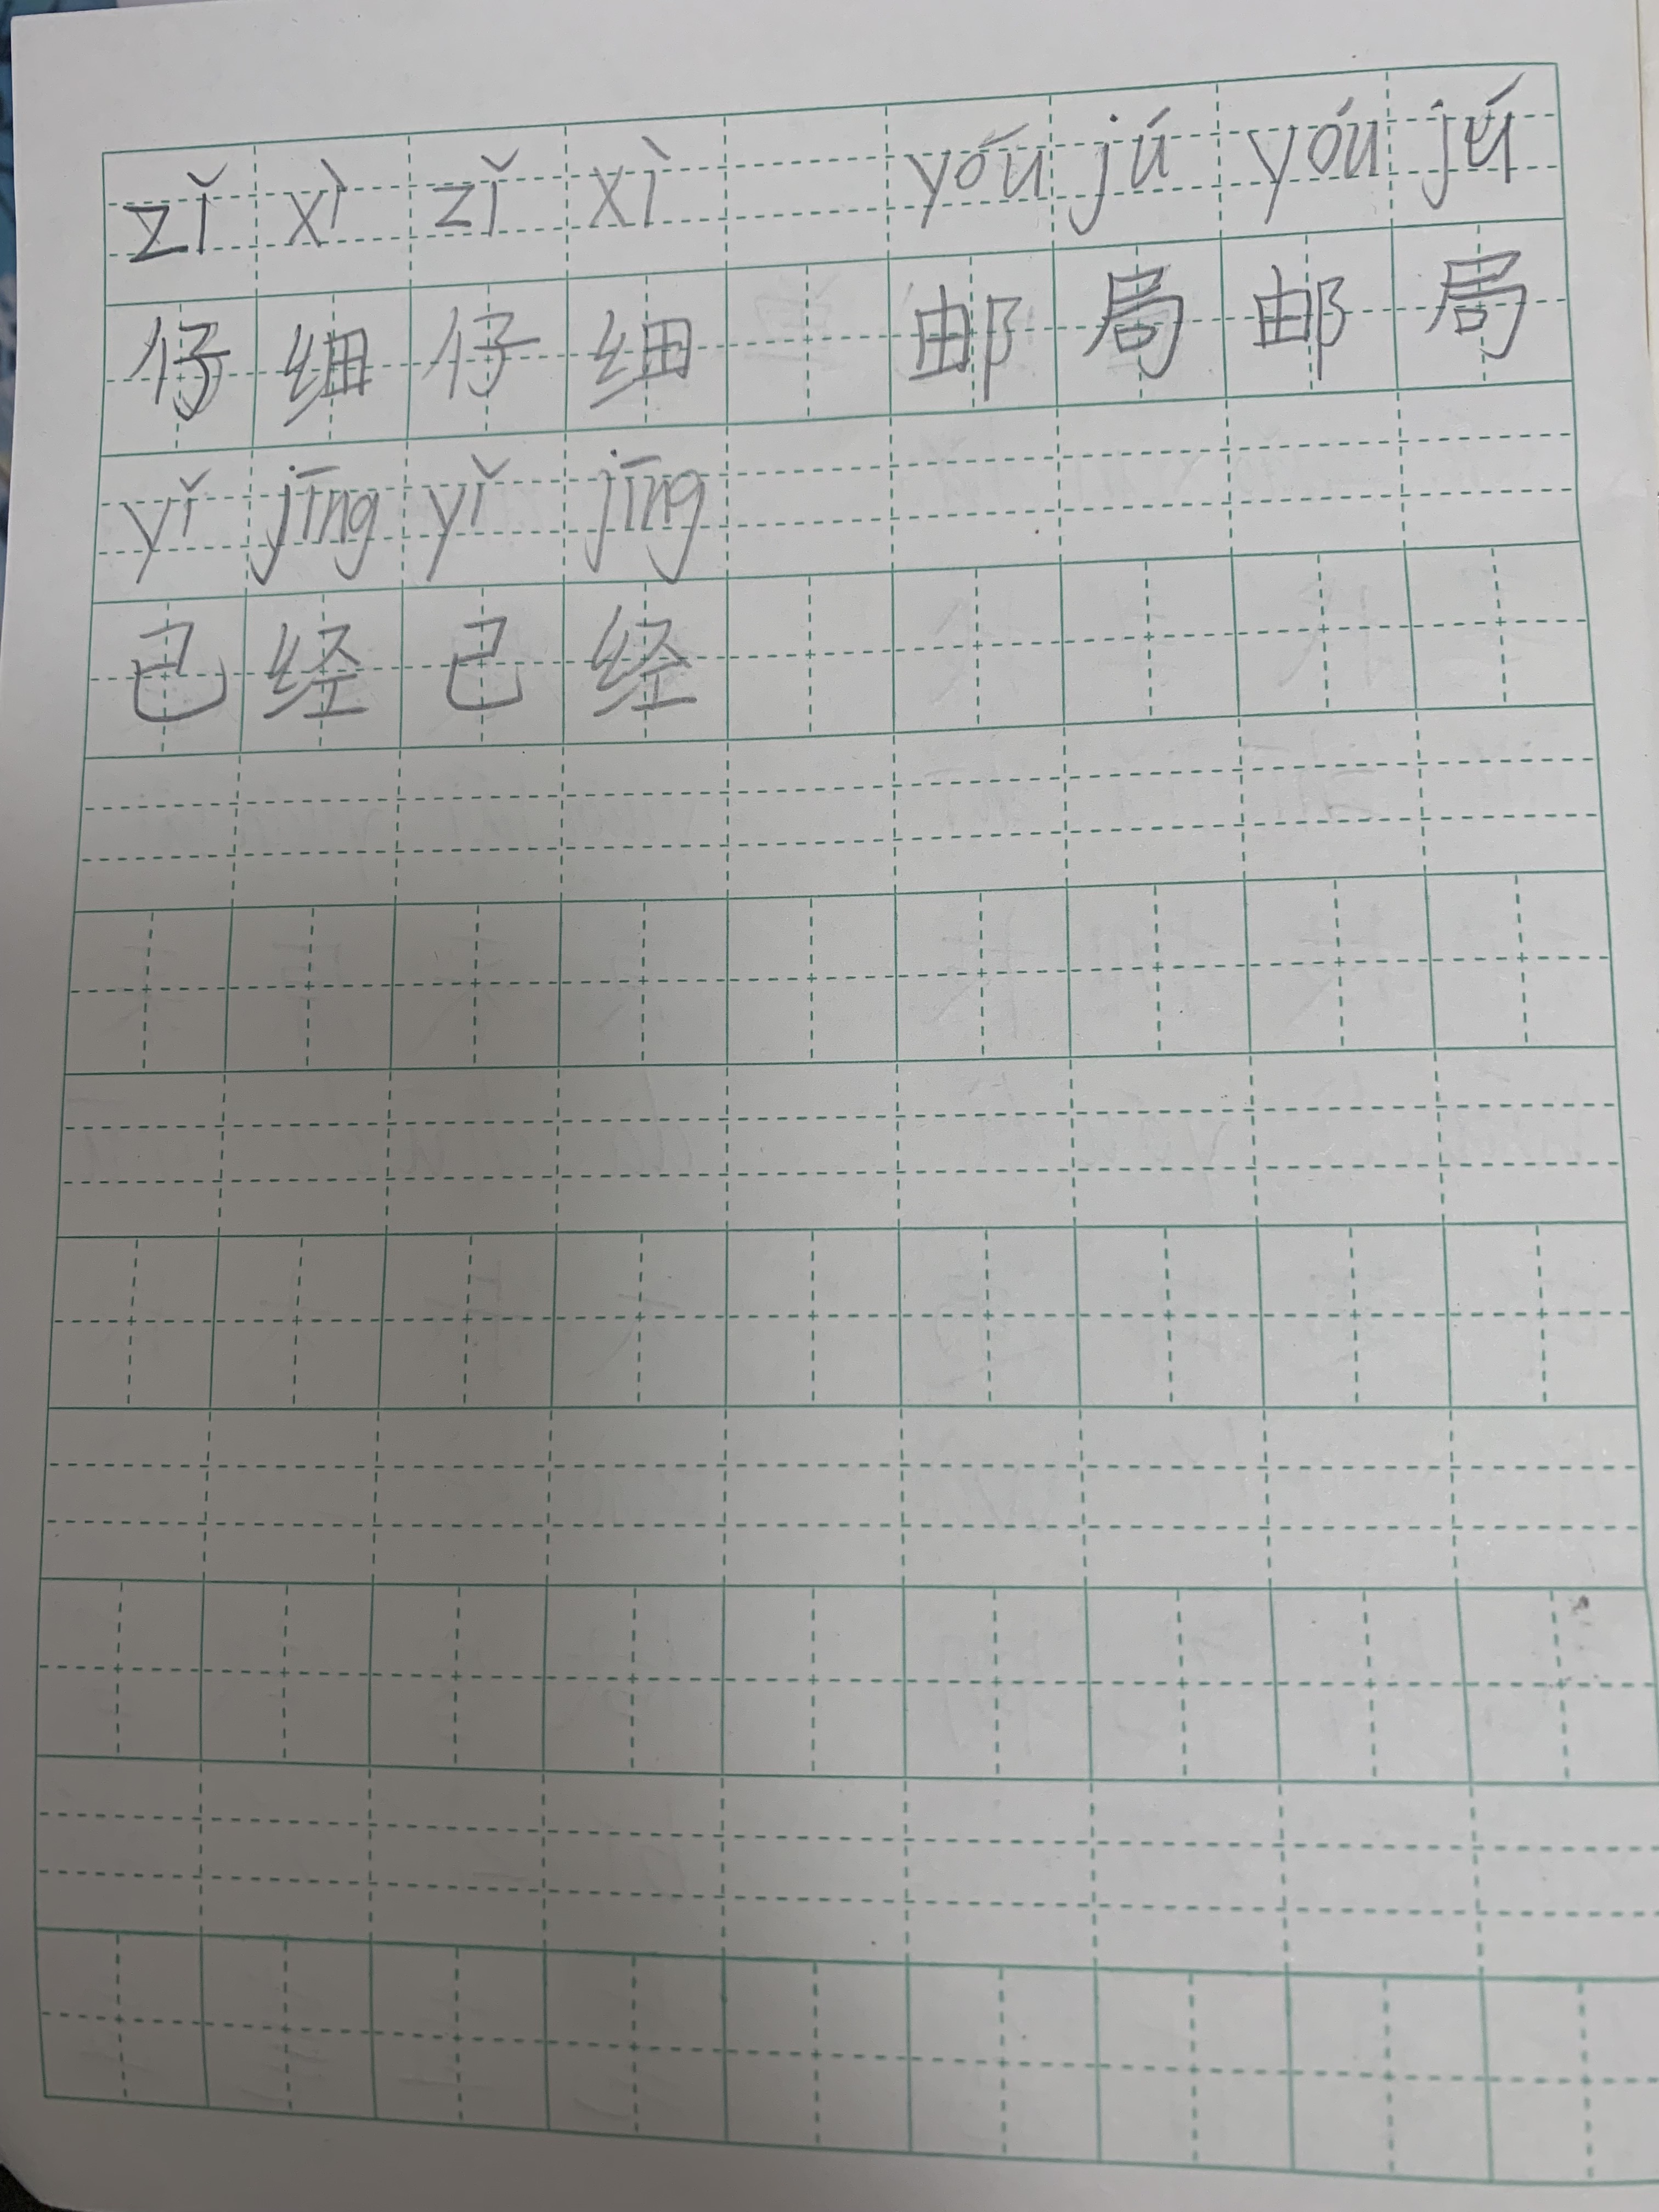 zǐ xì zǐ xì yóu jú yóu jú
仔细仔细 邮局邮局
yǐ jīng yǐ jīng
已经已经